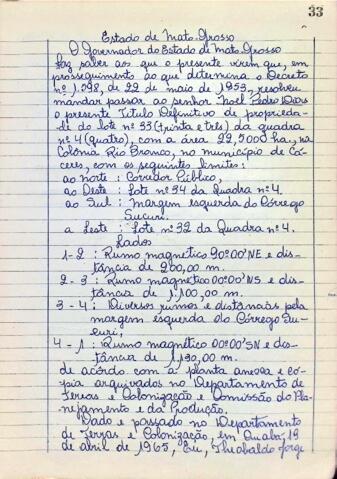 33
Estado de Mato-Grosso
O Governador do Estado de Mato-Grosso
Faz saber aos que o presente virem que, em
prosseguimento ao que determina o Decreto
nº 1.598, de 22 de maio de 1953, resolveu
mandar passar ao senhor Noel Pedro Dias
o presente Título Definitivo de proprieda-
de do lote nº 33 (trinta e três) da quadra
nº 4 (quatro), com a área 22,5000 ha., na
Colônia Rio Branco, no município de Cá-
ceres, com os seguintes limites:
ao norte : Corredor Público,
ao Oeste : Lote nº 34 da Quadra nº 4.
ao Sul : Margem esquerda do Córrego
Sucuri.
a Leste : Lote nº 32 da Quadra nº 4.
Lados
1-2 : Rumo magnético 90º00' NE e dis-
tância de 200,00 m.
2-3 : Rumo magnético 00º00' NS e dis-
tância de 1.100,00 m.
3-4 : Diversos rumos e distâncias pela
margem esquerda do Córrego Su-
curi,
4-1 : Rumo magnético 00º00' SN e dis-
tância de 1.130,00 m.
de acôrdo com a planta anexa e có-
pia arquivados no Departamento de
Terras e Colonização e Comissão do Pla-
nejamento e da Produção.
Dado e passado no Departamento
de Terras e Colonização, em Cuiabá, 19
de abril de 1965, Eu, Theobaldo Jorge